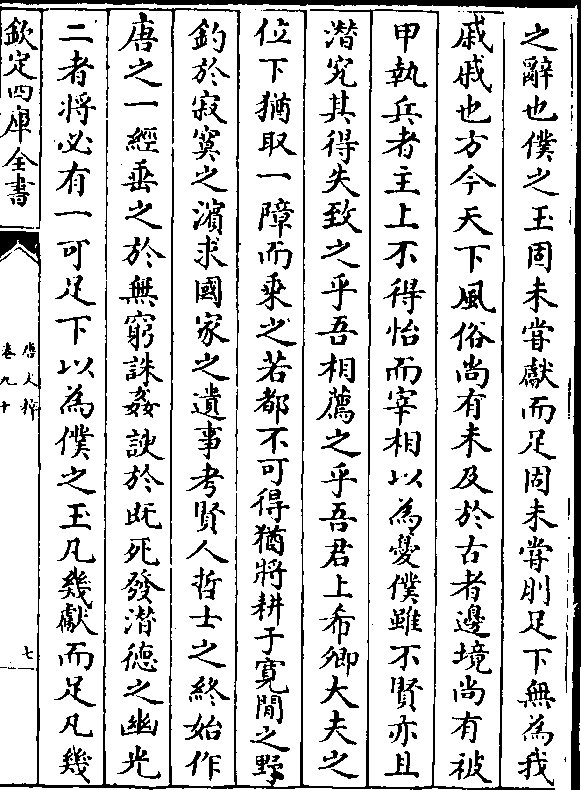 之辭也僕之玉固未嘗獻而足固未嘗刖足下無為我
戚戚也方今天下風俗尚有未及於古者邊境尚有被
甲執兵者主上不得怡而宰相以為憂僕雖不賢亦且
潜究其得失致之乎吾相薦之乎吾君上希卿大夫之
位下猶取一障而乘之若都不可得猶將耕于寛閒之野
釣於寂寞之濱求國家之遺事考賢人哲士之終始作
唐之一經垂之於無窮誅姦諛於既死發潜德之幽光
二者將必有一可足下以為僕之玉凡幾獻而足凡幾
欽定四庫全書
唐文粹
卷九十
七